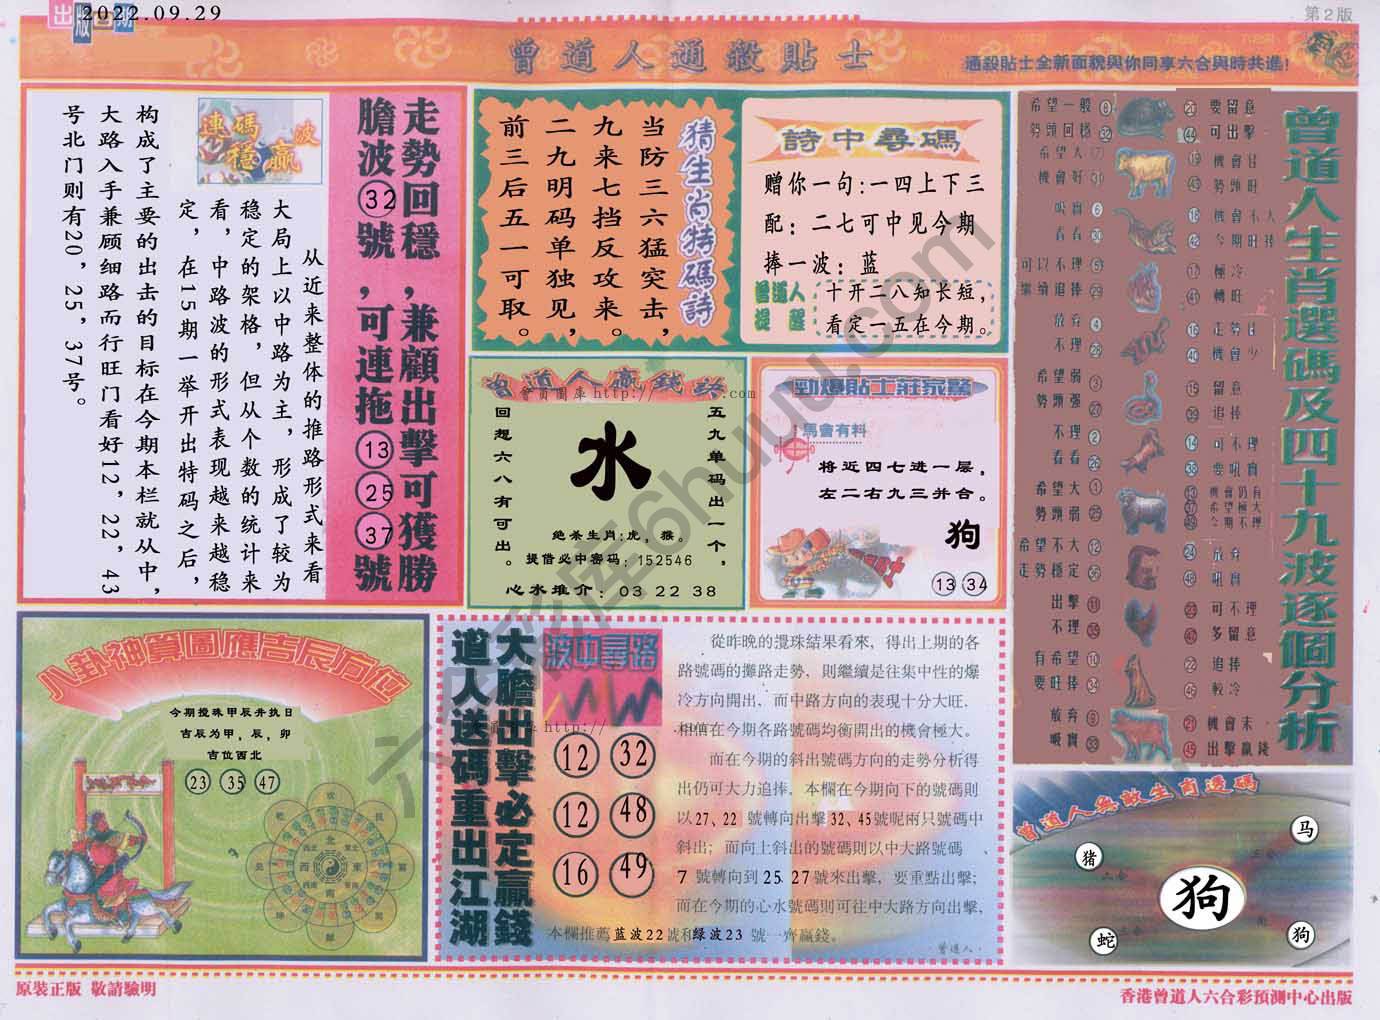 出版日期
2022.09.29
第2版
曾道人通殺貼士
通殺貼士全新面貌與你同享六合與時共進!
走勢回穩,兼顧出擊可獲勝
膽波32號,可連拖13 25 37號
連碼波
穩贏
从近来整体的推路形式来看
大局上以中路为主,形成了较为
稳定的架格,但从个数的统计来
看,中路波的形式表现越来越稳
定,在15期一举开出特码之后,
构成了主要的出击的目标在今期本栏就从中,
大路入手兼顾细路而行旺门看好12,22,43
号北门则有20,25,37号。
猜生肖特碼詩
当防三六猛突击,
九来七挡反攻来。
二九明码单独见,
前三后五一可取。
詩中尋碼
赠你一句:一四上下三
配:二七可中见今期
捧一波:蓝
曾道人
提醒
十开二八知长短,
看定一五在今期。
曾道人生肖選碼及四十九波逐個分析
希望一般 8 20 要留意
勢頭回穩 32 44 可出擊
希望大 7 19 機會佳
機會好 31 43 勢頭旺
吸實 6 18 機會不大
看看 30 42 今期旺捧
可以不理 5 17 極冷
繼續追捧 29 41 轉旺
放弃 4 16 走勢佳
不理 28 40 機會少
希望弱 3 15 留意
勢頭强 27 39 追捧
不理 2 14 可不理
看看 26 38 要吼實
希望大 1 13 機會仍有
勢頭弱 25 37 希望極大
49 今期不理
希望不大 12 24 放弃
走勢穩定 36 48 吼實
出擊 11 23 可不理
不理 35 47 多留意
有希望 10 22 追捧
要旺捧 34 46 較冷
放弃 9 21 機會末
吸實 33 45 出擊贏錢
曾道人贏錢訣
會員圖库 http:// .com
五九单码出一个,
回想六八有可出。
水
绝杀生肖:虎,猴。
提借必中密码:152546
心水推介:03 22 38
勁爆貼士莊家驚
馬會有料
将近四七进一层,
左二右九三并合。
狗
13 34
八卦神算圖應吉辰方位
今期搅珠甲辰并执日
吉辰为甲,辰,卯
吉位西北
23 35 47
大膽出擊必定贏錢
道人送碼重出江湖
波中尋路
會員圖库 http://
12 32
12 48
16 49
從昨晚的攪珠結果看來,得出上期的各
路號碼的攤路走勢,則繼續是往集中性的爆
冷方向開出,而中路方向的表現十分大旺,
相值在今期各路號碼均衡開出的機會極大。
而在今期的斜出號碼方向的走勢分析得
出仍可大力追捧,本欄在今期向下的號碼則
以27、22 號轉向出擊32、45號呢兩只號碼中
斜出;而向上斜出的號碼則以中大路號碼、
7 號轉向到25 27號來出擊,要重點出擊;
而在今期的心水號碼則可往中大路方向出擊,
本欄推薦 蓝波22號和绿波23 號一齊贏錢。
·曾道人·
曾道人無敵生肖透碼
马
猪
狗
蛇
狗
六彩库6huuu.com
原裝正版 敬請驗明
香港曾道人六合彩預測中心出版